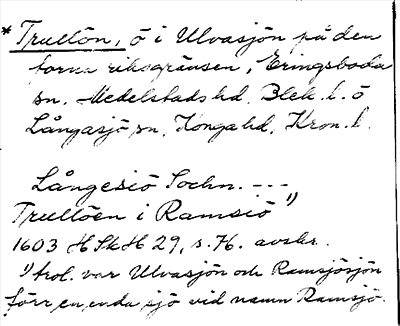 * Trultön, ö i Ulvasjön på den
forna riksgränsen, Eringsboda
sn, Medelstads hd, Blek. l. o
Långasjö sn, Konga hd, Kron. l.
Långesiö Sochn. ---
Trultöen i Ramsiö 1)
1603 HSkH 29, s. 76. avskr.
1) trol. var Ulvasjön och Ramsjösjön
förr en enda sjö vid namn Ramsjö.